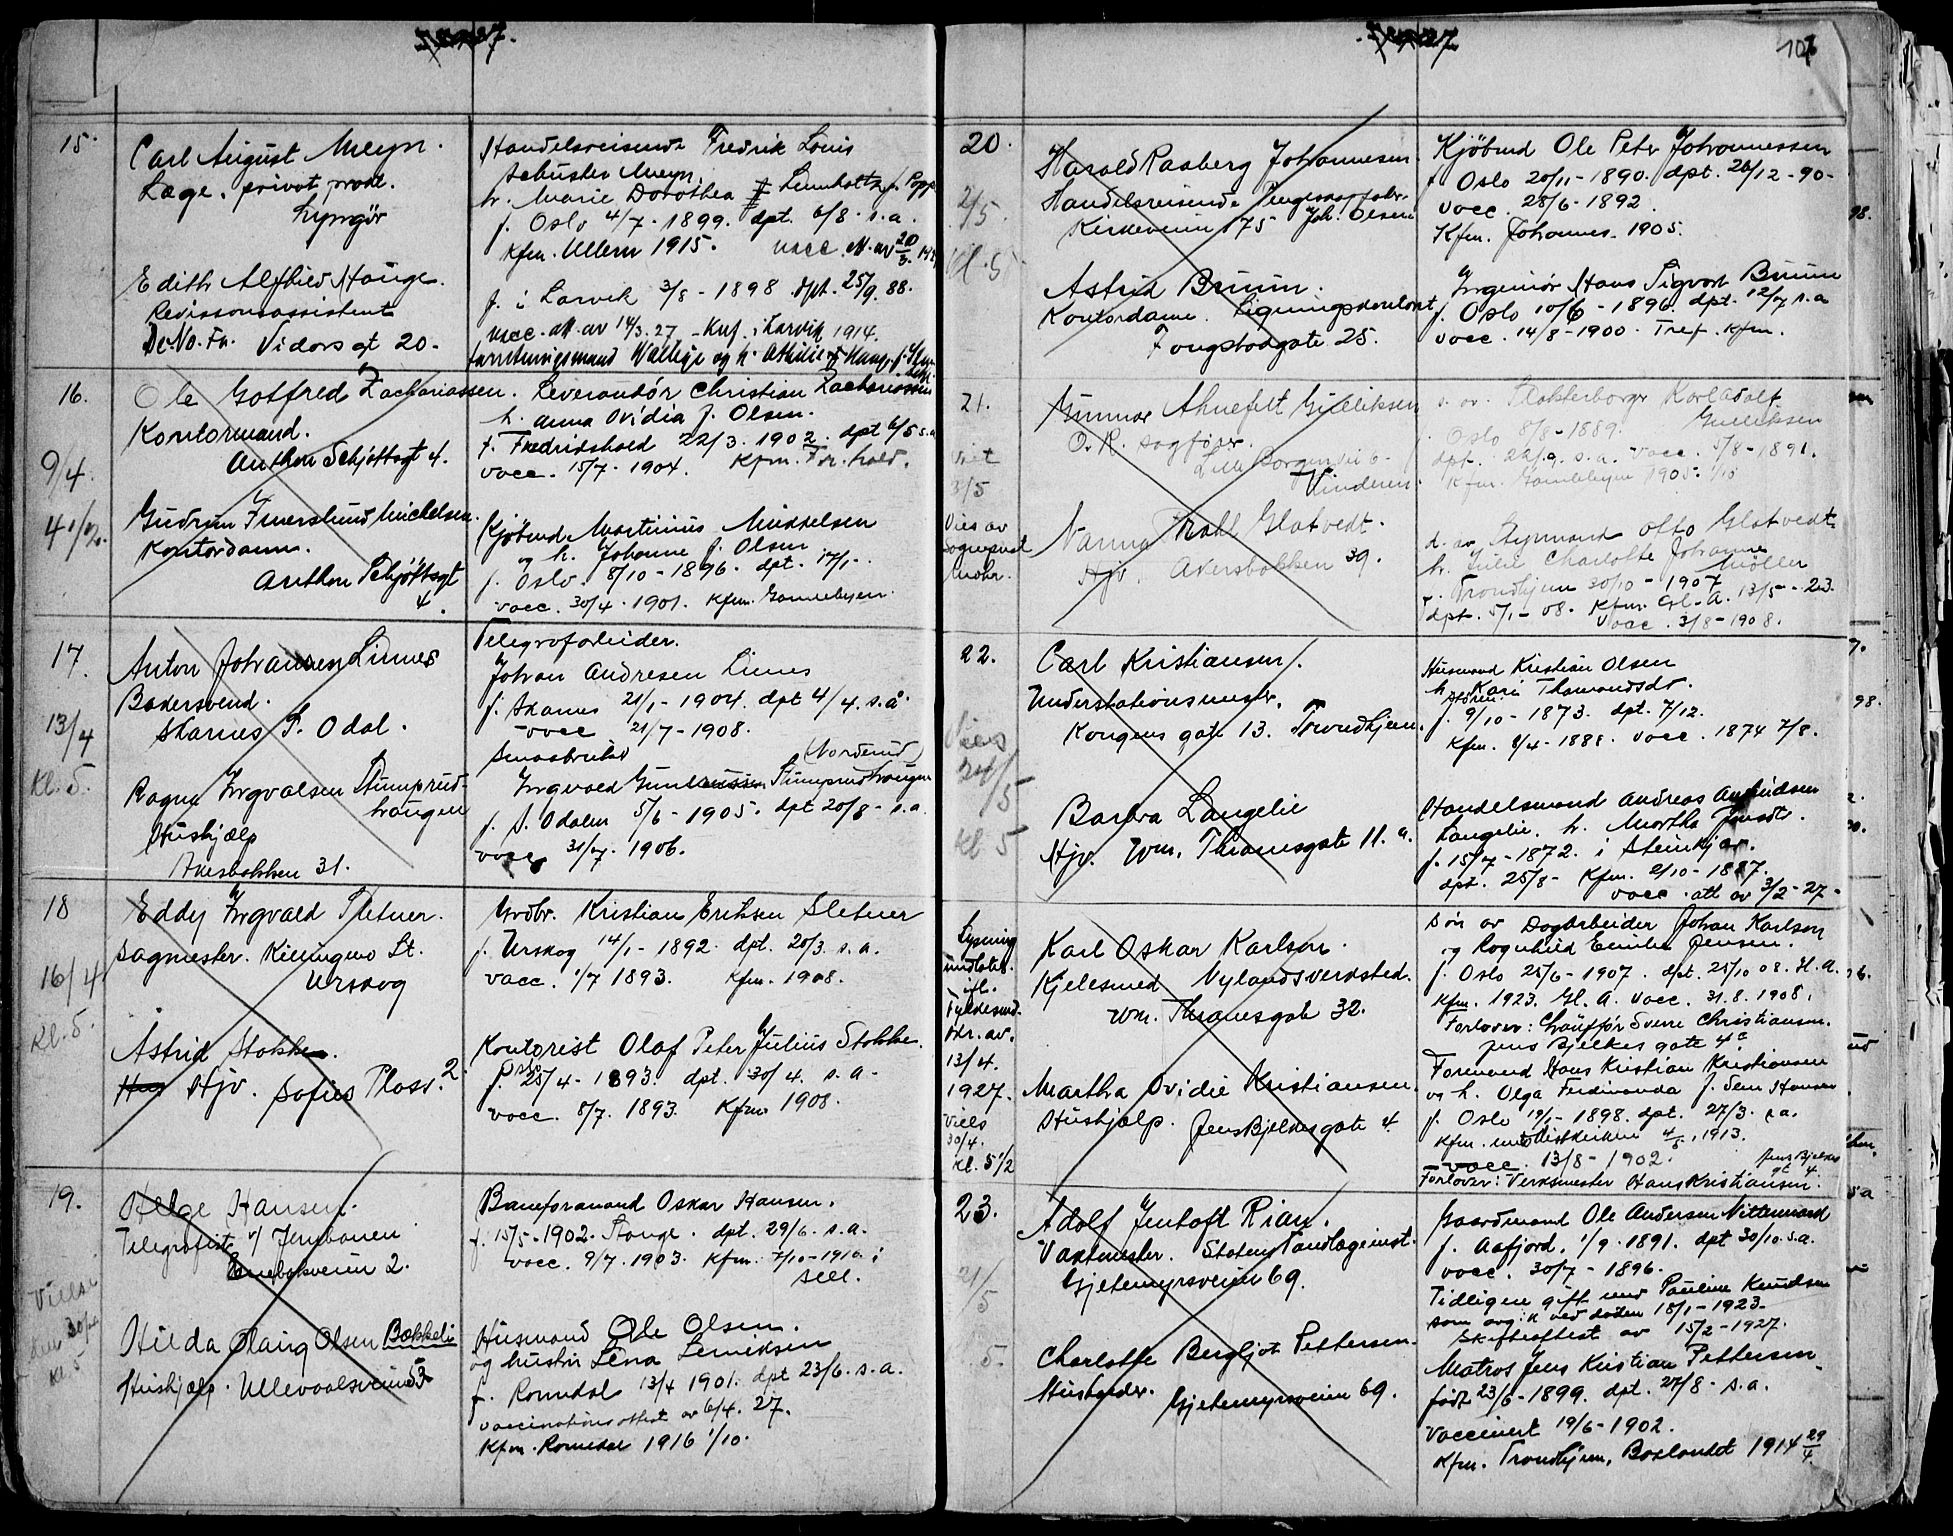 1927.
15.
Carl August Meyn.
Læge, privat prakt.
Lyngör
Handelsreisende Fredrik Louis
Schuster Meyn.
h. Marie Dorothea Lumholtz f. Popp
f. Oslo 4/7 - 1899. dpt. 6/8 - s.a.
Kfm. Ullern 1915. vacc. At. av 20/3
Edith Alfhild Hauge.
Revisorassistent
De No. Fa. Vidars gt 20.
f. i Larvik 3/8 - 1898 dpt. 25/9. 88.
vacc. att. av 14/3. 27 - Knf. i Larvik 1914.
16.
9/4
4 1/2.
Ole Gotfred Zachariassen.
Kontormand.
Anthon Schjøttsgt 4.
Leverandör Christian Zachariassen
h. Anna Ovidia f. Olsen.
f. Fredrikshald 22/3. 1902. dpt 6/5 s.a
vacc. 15/7. 1904. Kfm. Fr. hald.
Gudrun Imerslund Mickelsen.
Kontordame.
Anthon Schjøttsgt
4.
Kjöbmd Martinius Mikkelsen
og h. Johanne f. Olsen
f. Oslo. 8/10 - 1896. dpt. 17/1 -
vacc. 30/4. 1901. Kfm. Gamlebyen.
17.
13/4
Kl. 5.
Anton Johansen Linnes
Bakersvend.
Skarnes S. Odal.
Telegrafarbeider.
Johan Andresen Linnes
f. Skarnes 21/1 - 1904. dpt 4/4. s.å.
vacc 21/7 - 1908.
Ragna Ingvalsen Stumprud-
haugen
Hushjælp
Akersbakken 31.
Småbruker (Norderud)
Ingvald Gundersen Stumprudhaugen
f. S. Odalen 5/6 - 1905. dpt 20/8 - s.a.
vacc 31/7. 1906.
18
16/4
Kl. 5.
Eddy Ingvald Sletner.
Sagmester. Killingmo St.
Urskog
Grdbr. Kristian Eriksen Sletner
f. Urskog 14/1 - 1892. dpt. 20/3. s.a.
vacc. 1/7 1893. Kfm. 1908.
Astrid Stokke.
Hjv. Sofies Plass. 2
Kontorist Olaf Peter Julius Stokke.
f. Oslo 25/4 - 1893. dpt. 30/4. s.a.
vacc. 8/7. 1893. Kfm. 1908.
19.
Vielse
den 30/4
Kl. 5
Helge Hansen.
Telegrafist v/ Jernbanen
Enebakveien 2.
Baneformand Oskar Hansen.
f. 15/5 - 1902. Stange. dpt. 29/6. s.a.
vacc. 9/7. 1903. Kfm. 7/10 - 1916. i
sell.
Hilda Olaug Olsen Bakkeli
Hushjælp. Ullevaalsveien 53
Husmand Ole Olsen.
og hustru Lena Lauritsen
f. Romedal 13/4 1901. dpt 23/6. s.a.
vaccinationsattest av 6/4. 27.
Kfm. Romedal 1916 1/10.
1927.
107
20.
2/5.
Kl. 5
Harald Raaberg Johannesen.
Handelsreisende Pengeskapfabr.
Kirkeveien 175 Joh. Olsen
Kjöbmd Ole Peter Johannessen
f. Oslo 20/11 - 1890. dpt. 26/12 - 90 -
vacc. 28/6 - 1892.
Kfm. Johannes. 1905.
Astrid Bruun.
Kontordame. Ligningskontoret
Fougstadsgate 25.
Ingeniør Hans Sigvart Bruun
f. Oslo 10/6 - 1896. dpt. 12/7 s.a
vacc. 14/8 - 1900 - Tref. Kfm.
21.
Viet
3/5
Vies av
Sogneprest
Mohr.
Gunnar Ahnefelt Gulliksen
O. R. sagfører.
Lille Borgenvei 6 -
Vinderen.
s. av. Slakterborger Karl Adolf
Gulliksen
Oslo 8/8 - 1889.
dpt. 22/9. s.a. vacc. 5/8 - 1891.
Kfm. Gamlebyen 1905. 1/10
Nanna Prahl Glatvedt.
Hjv. Akersbakken 39.
d. av Styrmand Otto Glatvedt
h. Julie Charlotte Johanne
Möller
f. Trondhjem 30/10 - 1907
dpt. 5/1 - 08. Kfm. Gl. A. 13/5 - 23.
Vacc. 3/8 - 1908.
22.
Vies
24/5
Kl 5
Carl Kristiansen.
Understationsmester.
Kongens gate 13. Trondhjem.
Husmand Kristian Olsen
h. Kari Thomasdtr.
f. Støren 9/10 - 1873. dpt. 7/12.
Kfm. 8/4 - 1888. vacc. 1874 7/8.
Barbra Langelie
Hjv. Wm. Thranesgate 11. a.
Handelsmand Andreas Amundsen
Langelie. h. Martha Jensdtr.
f. 15/7 - 1872. i Steinkjær.
dpt. 25/8 - Kfm. 2/10 - 1887.
vacc. att av 3/2 - 27 -
Lysning
undlatt
ifl.
Fylkesmd.
Nr. av.
13/4.
1927.
Viels
30/4.
Kl. 5 1/2
Karl Oskar Karlsen.
Kjelesmed Nylands Verksted.
Wm. Thranesgate 32.
Søn av Dagarbeider Johan Karlson
og Ragnhild Emilie Jensen.
f. Oslo 25/6 - 1907. dpt. 25/10 08. H.A.
Kfm. 1923. Gl. A. vacc. 31.8. 1908.
Forlover: Chauffør Sverre Christiansen.
Jens Bjelkes gate 4c
Martha Ovidie Kristiansen.
Hushjælp. Jens Bjelkes gate 4.
Formand Hans Kristian Kristiansen
og h. Olga Ferdinanda f. Sem Hansen
f. Oslo 19/1 - 1898. dpt. 27/3. s.a.
vacc. 13/8 - 1902.
Jens Bjelkes
gt 4.
Forlover: Verksmester Hans Kristiansen.
23.
21/5
5.
Adolf Jentoft Rian.
Vaktmester. Statens Tandlægeinst.
Gjetemyrsveien 69.
Gaardmand Ole Andersen Nittermard
f. Aafjord. 1/9. 1891. dpt 30/10. s.a.
vacc. 30/7 - 1896.
Tidligere gift med Pauline Knudsen
som avgik ved døden 18/1 - 1923.
Skifteattest av 15/2 - 1927.
Charlotte Bergljot Pettersen.
Husholder. Gjetemyrsveien 69.
Matros Jens Kristian Pettersen
født 23/6 - 1899. dpt. 27/8 - s.a.
Vaccinert 19/6 - 1902.
Kfm. Trondhjem, Baklandet 1914 29/4